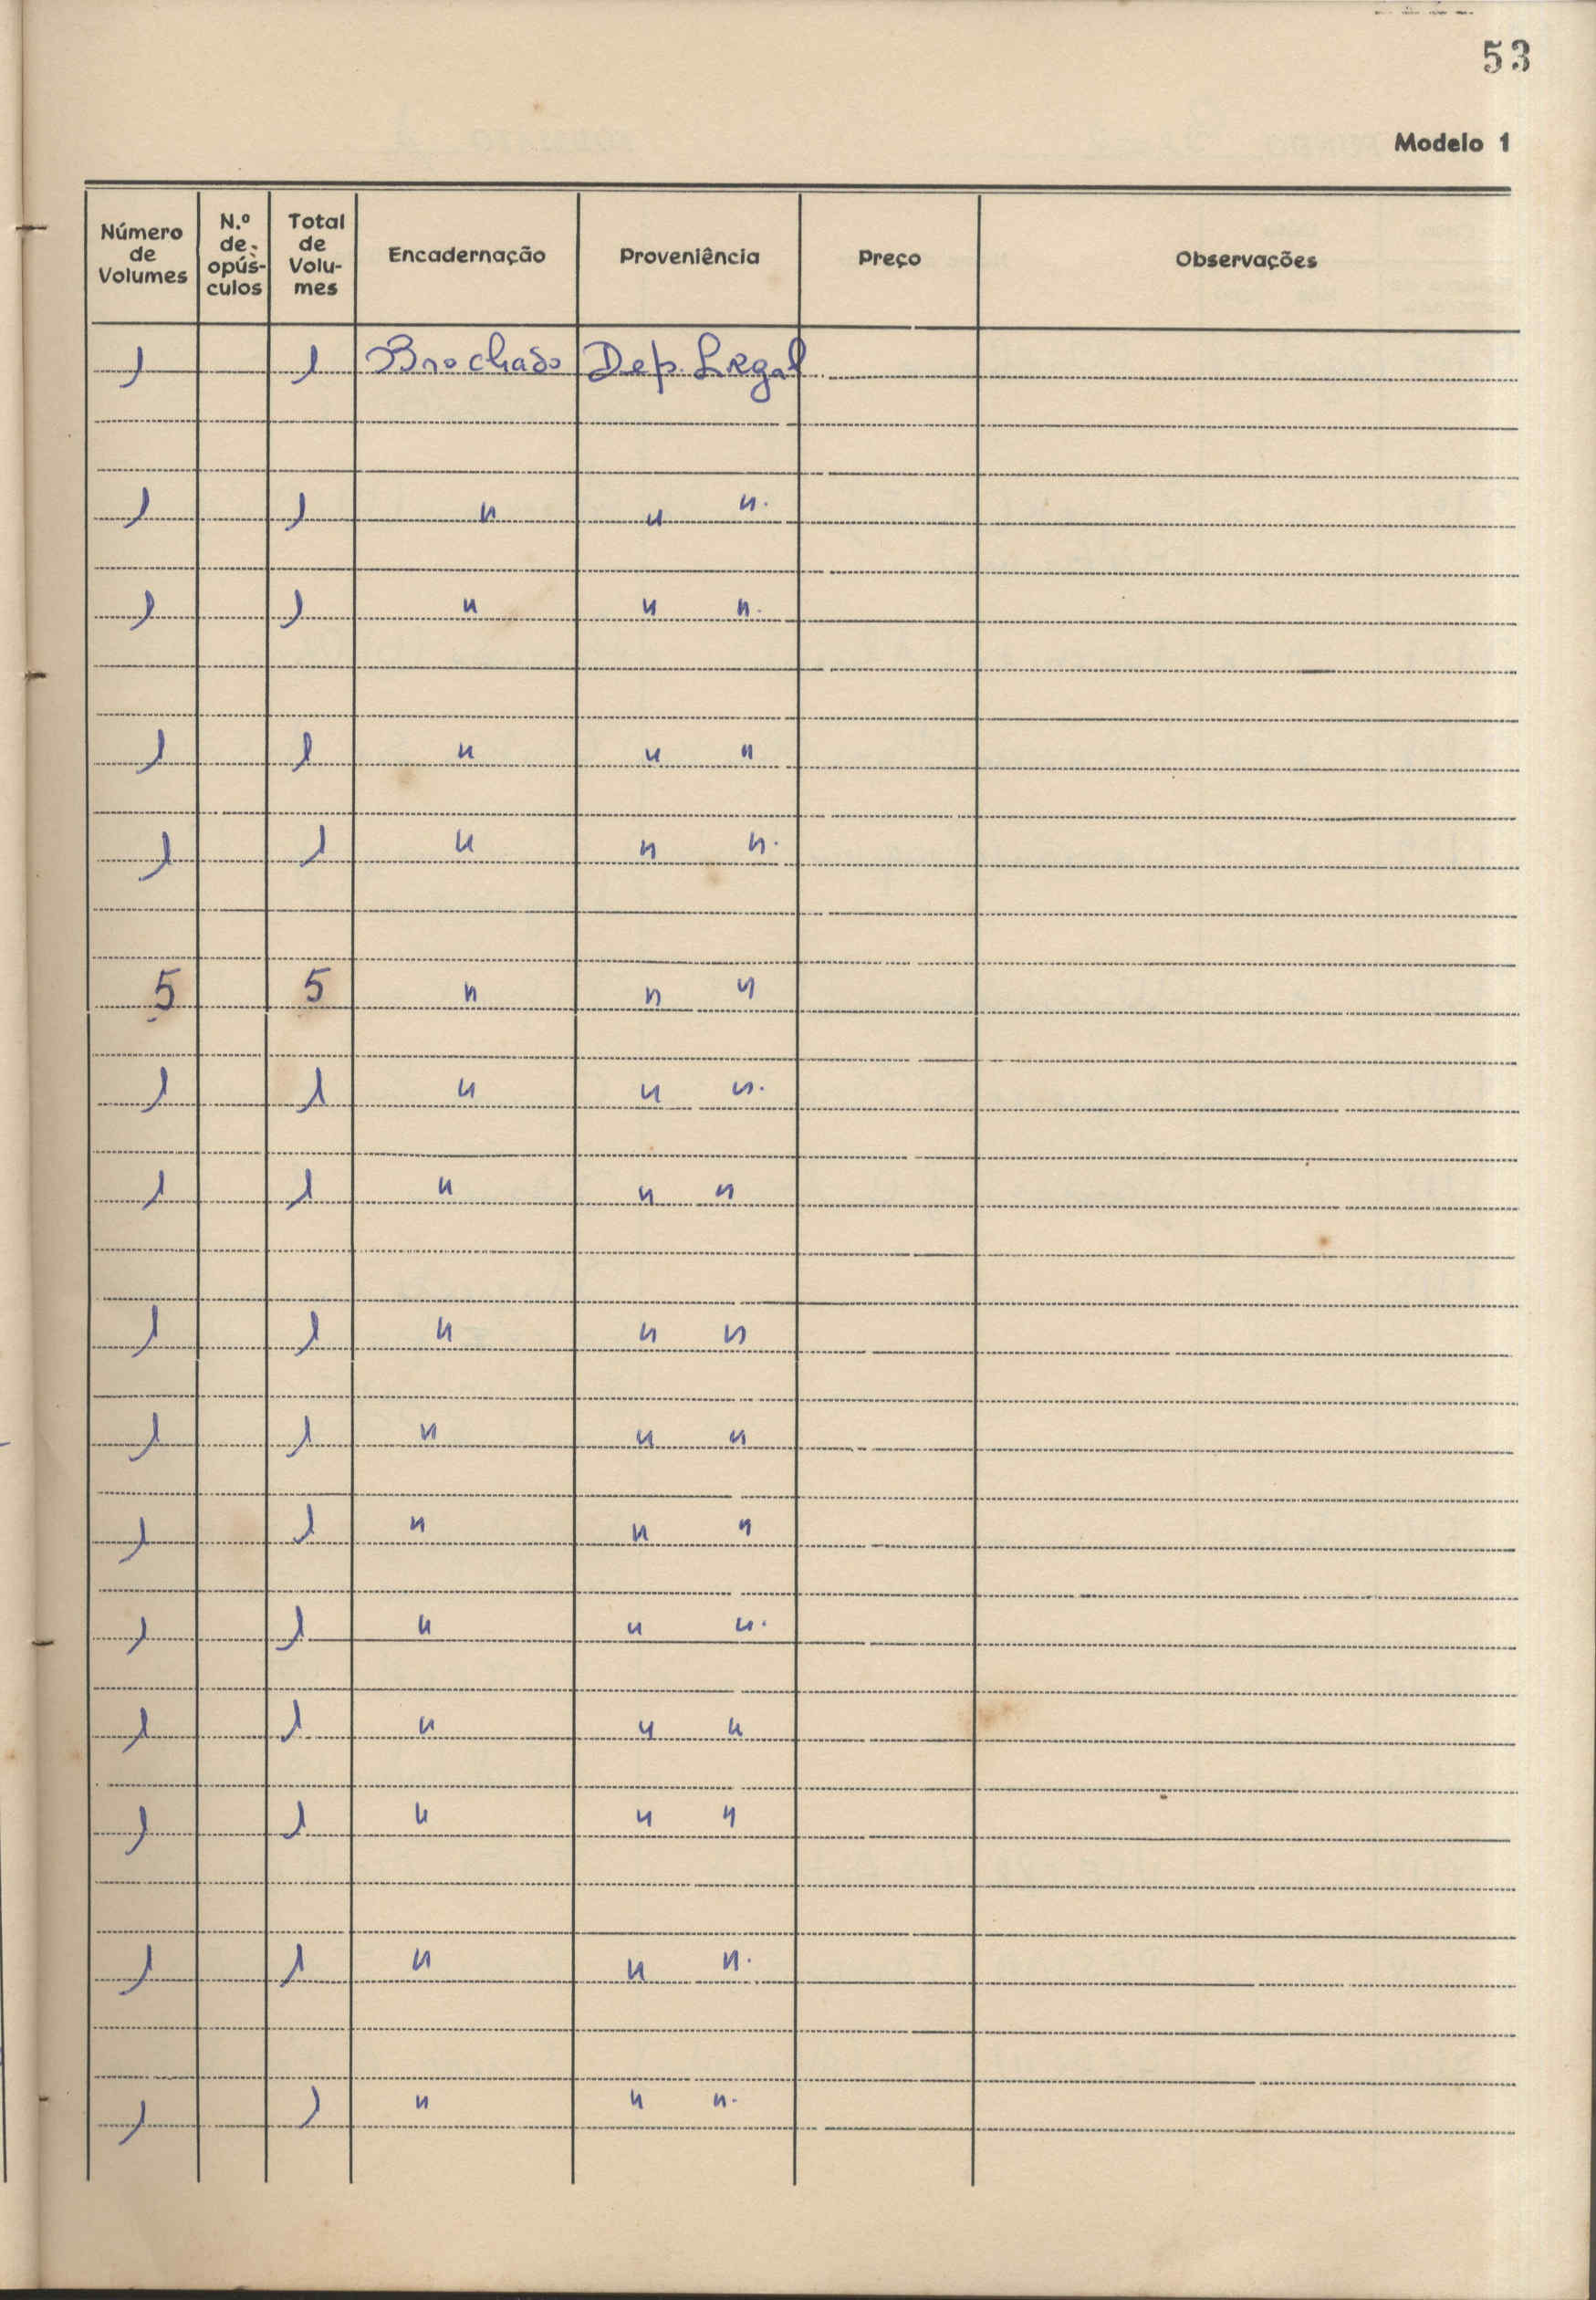 53
Modelo 1
Número de Volumes | N.º de opús-culos | Total de Volu-mes | Encadernação | Proveniência | Preço | Observações
1 | | 1 | Brochado | Dep. Legal | |
1 | | 1 | " | " " | |
1 | | 1 | " | " " | |
1 | | 1 | " | " " | |
1 | | 1 | " | " " | |
5 | | 5 | " | " " | |
1 | | 1 | " | " " | |
1 | | 1 | " | " " | |
1 | | 1 | " | " " | |
1 | | 1 | " | " " | |
1 | | 1 | " | " " | |
1 | | 1 | " | " " | |
1 | | 1 | " | " " | |
1 | | 1 | " | " " | |
1 | | 1 | " | " " | |
1 | | 1 | " | " " | |